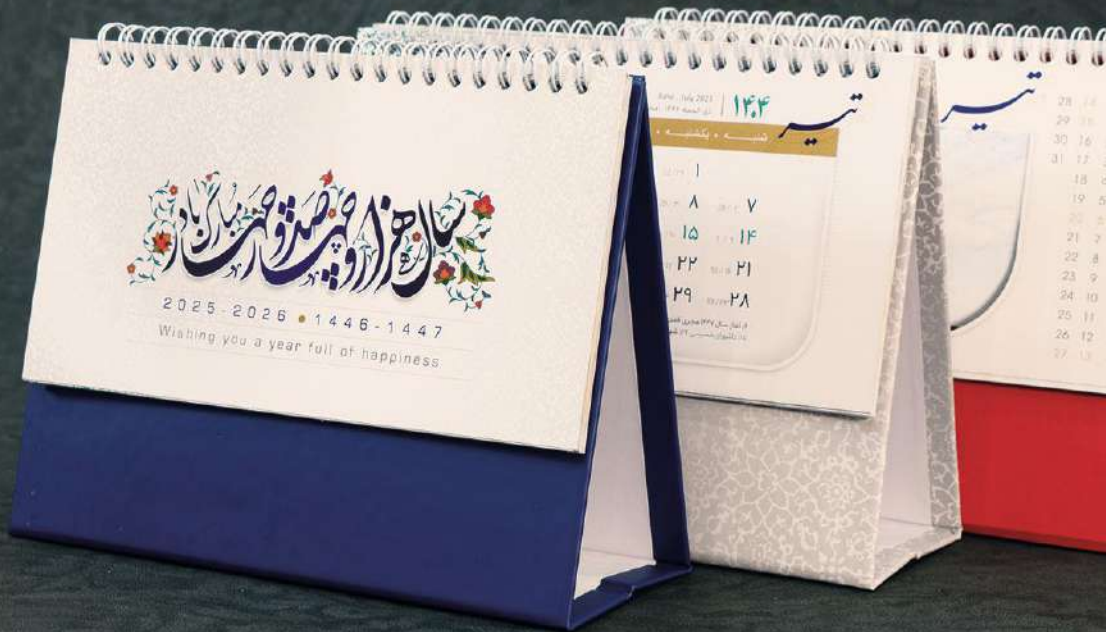 سال هزار و چهارصد و چهار مبارک باد
2025-2026 • 1446-1447
Wishing you a year full of happiness
تیر
۱۴۰۴
June . July 2025
شنبه • یکشنبه •
۱
۷ ۸
۱۴ ۱۵
۲۱ ۲۲
۲۸ ۲۹
تیر
28
29
30 16
31 17
18
19 5
21 2
22 8
23 9
24 10
25 11
26 12
27 13